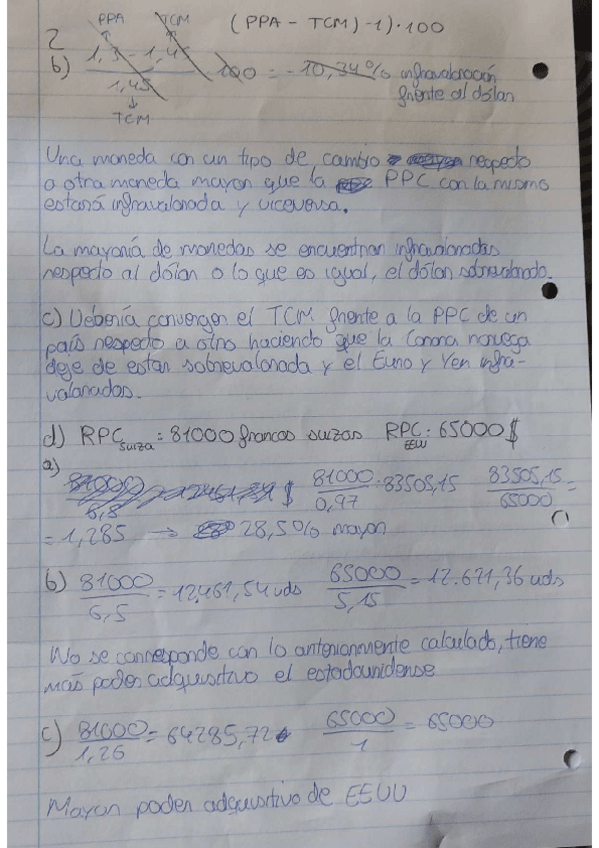 PPA TCM (PPA - TCM) -1)·100
2
b) 1,3 - 1,45 / 1,45 · 100 = -10,34% infravaloración
frente al dólar
TCM
Una moneda con un tipo de cambio respecto
a otra moneda mayor que la PPC con la misma
estará infravalorada y viceversa.
La mayoría de monedas se encuentran infravaloradas
respecto al dólar o lo que es igual, el dólar sobrevalorado.
c) Debería converger el TCM frente a la PPC de un
país respecto a otro haciendo que la Corona noruega
deje de estar sobrevalorada y el Euro y Yen infra-
valoradas.
d) RPC Suiza = 81000 francos suizos RPC EEUU : 65000 $
a) $ 81000 / 0,97 = 83505,15 83505,15 / 65000 =
= 1,285 → 28,5% mayor
b) 81000 / 6,5 = 12.461,54 uds 65000 / 5,15 = 12.621,36 uds
No se corresponde con lo anteriormente calculado, tiene
más poder adquisitivo el estadounidense
c) 81000 / 1,26 = 64285,72 65000 / 1 = 65000
Mayor poder adquisitivo de EEUU